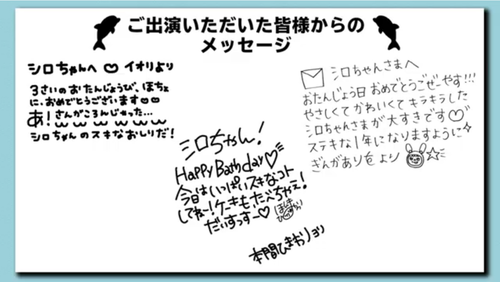 ご出演いただいた皆様からの
メッセージ
シロちゃんへ イオリより
3さいのおたんじょうび、ほちょ
に、おめでとうございます
あ!さんがころんじゃった…
シロちゃんのスキなおしりだ!
シロちゃんさまへ
おたんじょう日 おめでとうごぜーやす!!!
やさしくてかわいくてキラキラした
シロちゃんさまが大すきです
ステキな1年になりますように
ぎんがありをより
シロちゃん!
Happy Bathday
今日はいっぱいスキなコト
してねー!ケーキもたべちゃえ!
だいすっすー
本間ひまわりより